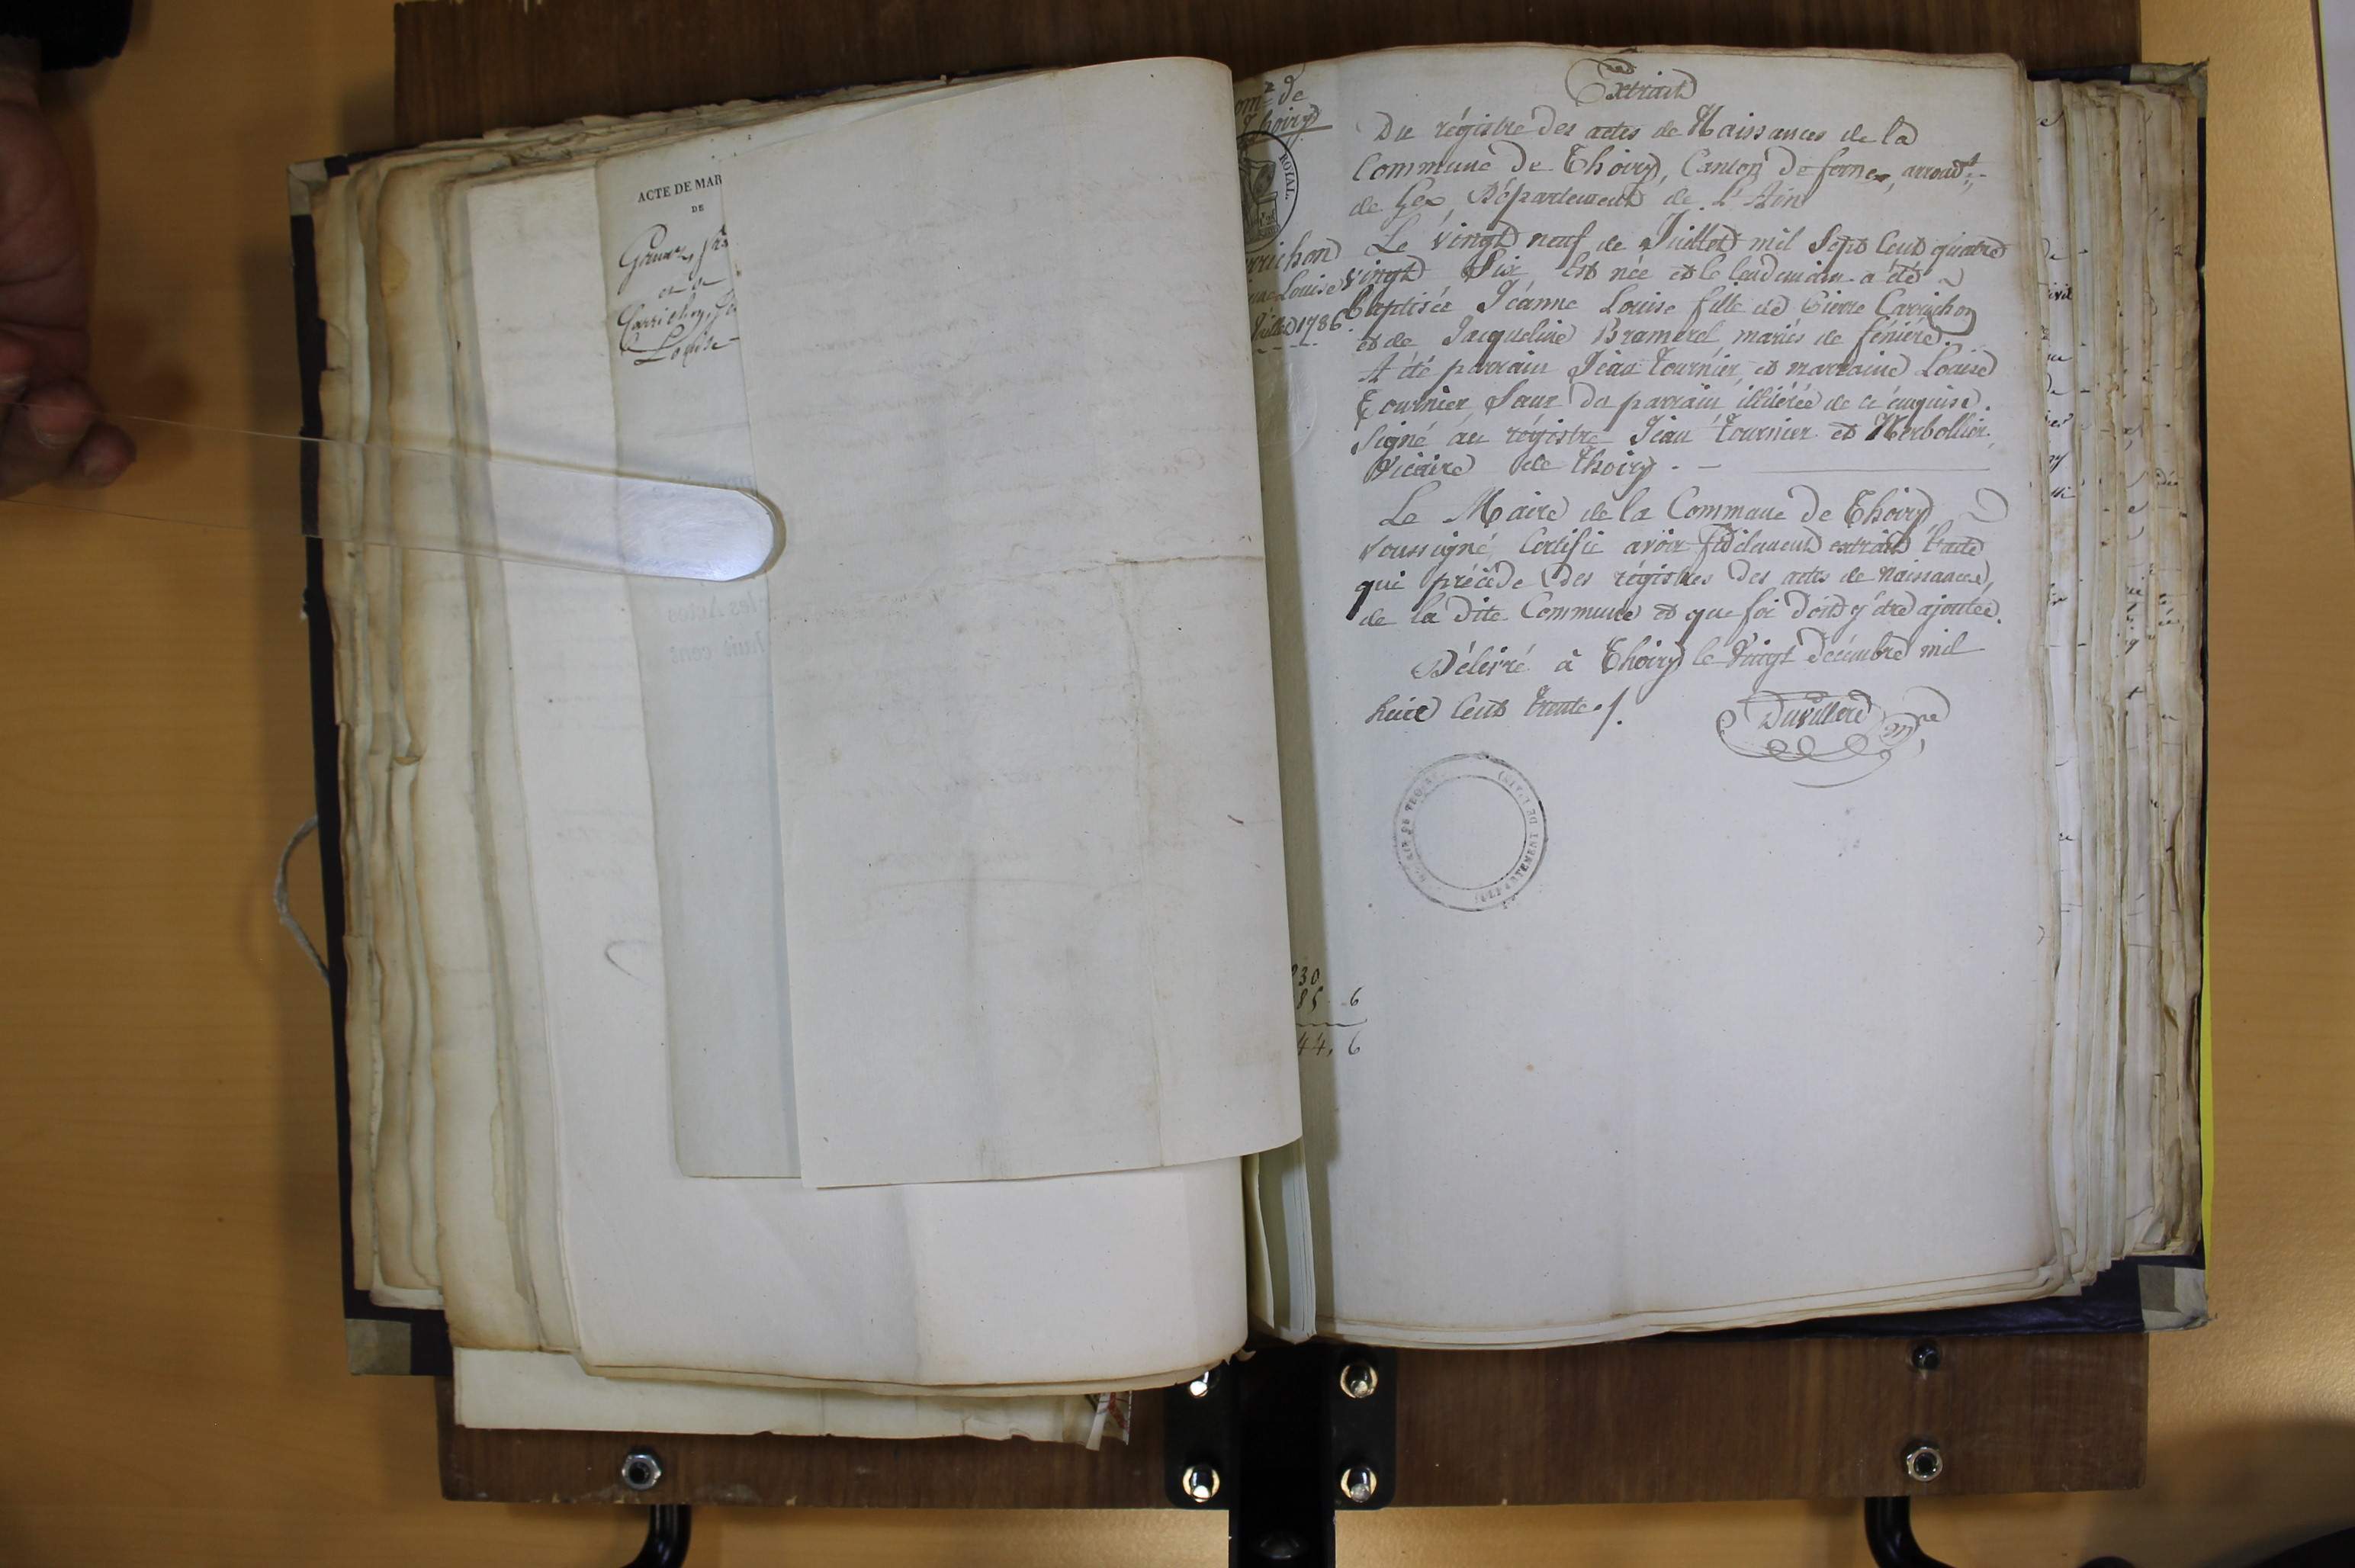 ACTE DE MAR
DE
et de
Louise
om.ne de
Thoiry
ROYAL
rrichon
nne Louise
Juillet 1786
Extrait
Du régistre des actes de Naissances de la
Commune de Thoiry, Canton de fernex, arrond.t
de Gex, Département de L'Ain
Le vingt neuf de Juillet mil Sept Cent quatre
vingt Six, Est née et le lendemain a été
baptisée Jéanne Louise fille de Pierre Carrichon
et de Jacqueline Bramerel mariés de féniere.
A été parrain Jéan Tournier, et marraine Louise
Tournier, Sœur du parrain, illitérée de ce enquise.
Signé au régistre Jéan Tournier et Merbollier,
Vicaire de Thoiry. —
Le Maire de la Commune de Thoiry
Soussigné, Certifie avoir fidélement extrait l'acte
qui précède des régistres des actes de naissances,
de la dite Commune et que foi doit y être ajoutée.
Délivré à Thoiry le vingt décembre mil
huit Cent trente ./.
Duvillard m.re
DÉPARTEMENT DE L'AIN
30
85 6
44, 6
les Actes
huit cent